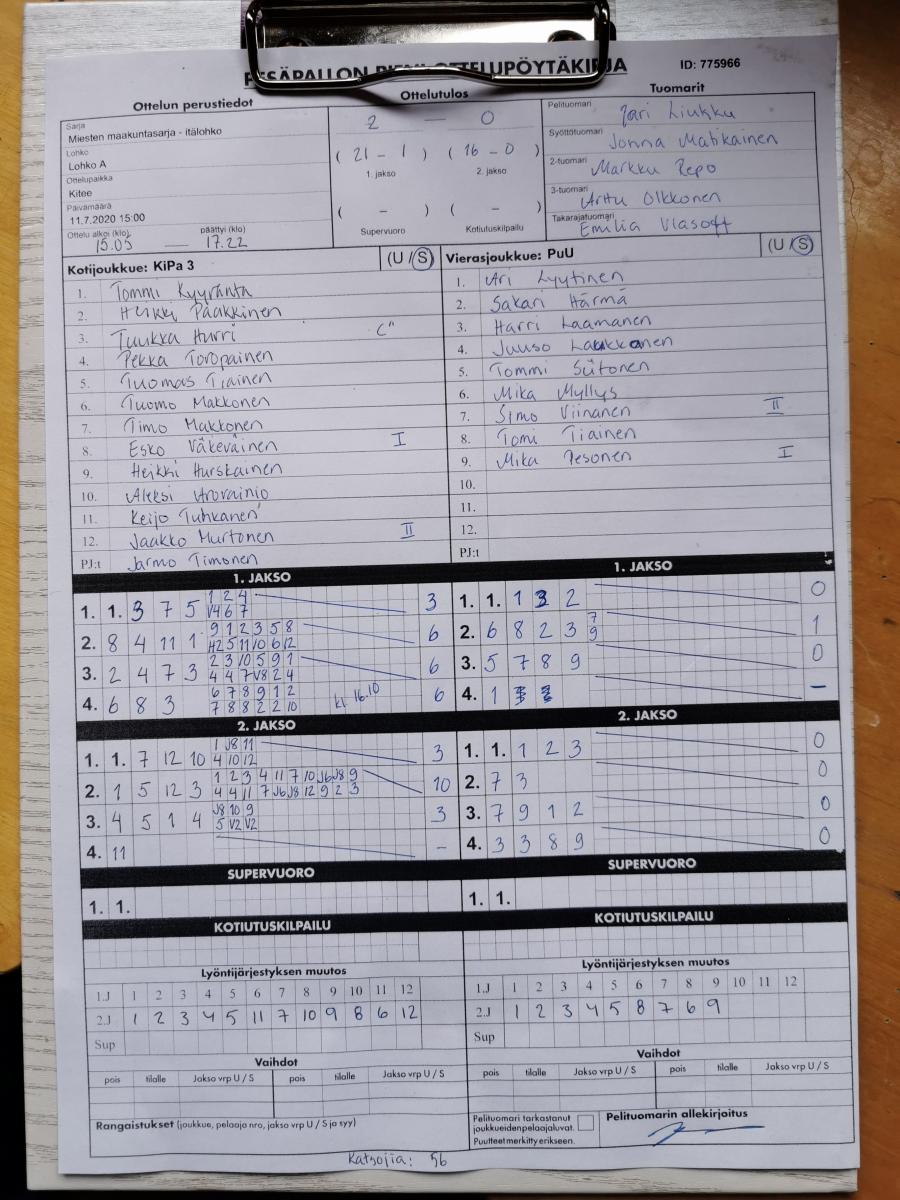 PESÄPALLON PIENI OTTELUPÖYTÄKIRJA
ID: 775966
Ottelun perustiedot
Sarja
Miesten maakuntasarja - itälohko
Lohko
Lohko A
Ottelupaikka
Kitee
Päivämäärä
11.7.2020 15:00
Ottelu alkoi (klo) päättyi (klo)
15.05 — 17.22
Ottelutulos
2 — 0
( 21 - 1 ) ( 16 - 0 )
1. jakso 2. jakso
( - ) ( - )
Supervuoro Kotiutuskilpailu
Tuomarit
Pelituomari
Jari Liukku
Syöttötuomari
Jonna Matikainen
2-tuomari
Markku Repo
3-tuomari
Arttu Olkkonen
Takarajatuomari
Emilia Vlasoff
Kotijoukkue: KiPa 3 (U / S)
1. Tommi Kyyränta
2. Heikki Pääkkinen
3. Tuukka Hurri C"
4. Pekka Toropainen
5. Tuomas Tiainen
6. Tuomo Makkonen
7. Timo Makkonen
8. Esko Väkeväinen I
9. Heikki Hurskainen
10. Aleksi Arovainio
11. Keijo Tuhkanen
12. Jaakko Hurtonen II
PJ:t Jarmo Timonen
Vierasjoukkue: PuU (U / S)
1. Ari Lyytinen
2. Sakari Härmä
3. Harri Laamanen
4. Juuso Laukkanen
5. Tommi Siitonen
6. Mika Myllys
7. Simo Viinanen II
8. Tomi Tiainen
9. Mika Pesonen I
10.
11.
12.
PJ:t
1. JAKSO
1 2 4
1. 1. 3 7 5 V4 6 7 3
9 1 2 3 5 8
2. 8 4 11 1 H2 5 11 10 6 12 6
2 3 10 5 9 1
3. 2 4 7 3 4 4 7 V8 2 4 6
6 7 8 9 1 2
4. 6 8 3 7 8 8 2 2 10 kl 16.10 6
1. JAKSO
1. 1. 1 3 2 0
7
2. 6 8 2 3 9 1
3. 5 7 8 9 0
4. 1 –
2. JAKSO
1 J8 11
1. 1. 7 12 10 4 10 12 3
1 2 3 4 11 7 10 J6 J8 9
2. 1 5 12 3 4 4 11 7 J6 J8 12 9 2 3 10
J8 10 9
3. 4 5 1 4 5 V2 V2 3
4. 11 –
2. JAKSO
1. 1. 1 2 3 0
2. 7 3 0
3. 7 9 1 2 0
4. 3 3 8 9 0
SUPERVUORO
1. 1.
SUPERVUORO
1. 1.
KOTIUTUSKILPAILU
KOTIUTUSKILPAILU
Lyöntijärjestyksen muutos
1.J 1 2 3 4 5 6 7 8 9 10 11 12
2.J 1 2 3 4 5 11 7 10 9 8 6 12
Sup
Lyöntijärjestyksen muutos
1.J 1 2 3 4 5 6 7 8 9 10 11 12
2.J 1 2 3 4 5 8 7 6 9
Sup
Vaihdot
pois tilalle Jakso vrp U / S pois tilalle Jakso vrp U / S
Vaihdot
pois tilalle Jakso vrp U / S pois tilalle Jakso vrp U / S
Rangaistukset (joukkue, pelaaja nro, jakso vrp U / S ja syy)
Pelituomari tarkastanut
joukkueidenpelaajaluvat.
Puutteet merkitty erikseen.
Pelituomarin allekirjoitus
Katsojia: 56